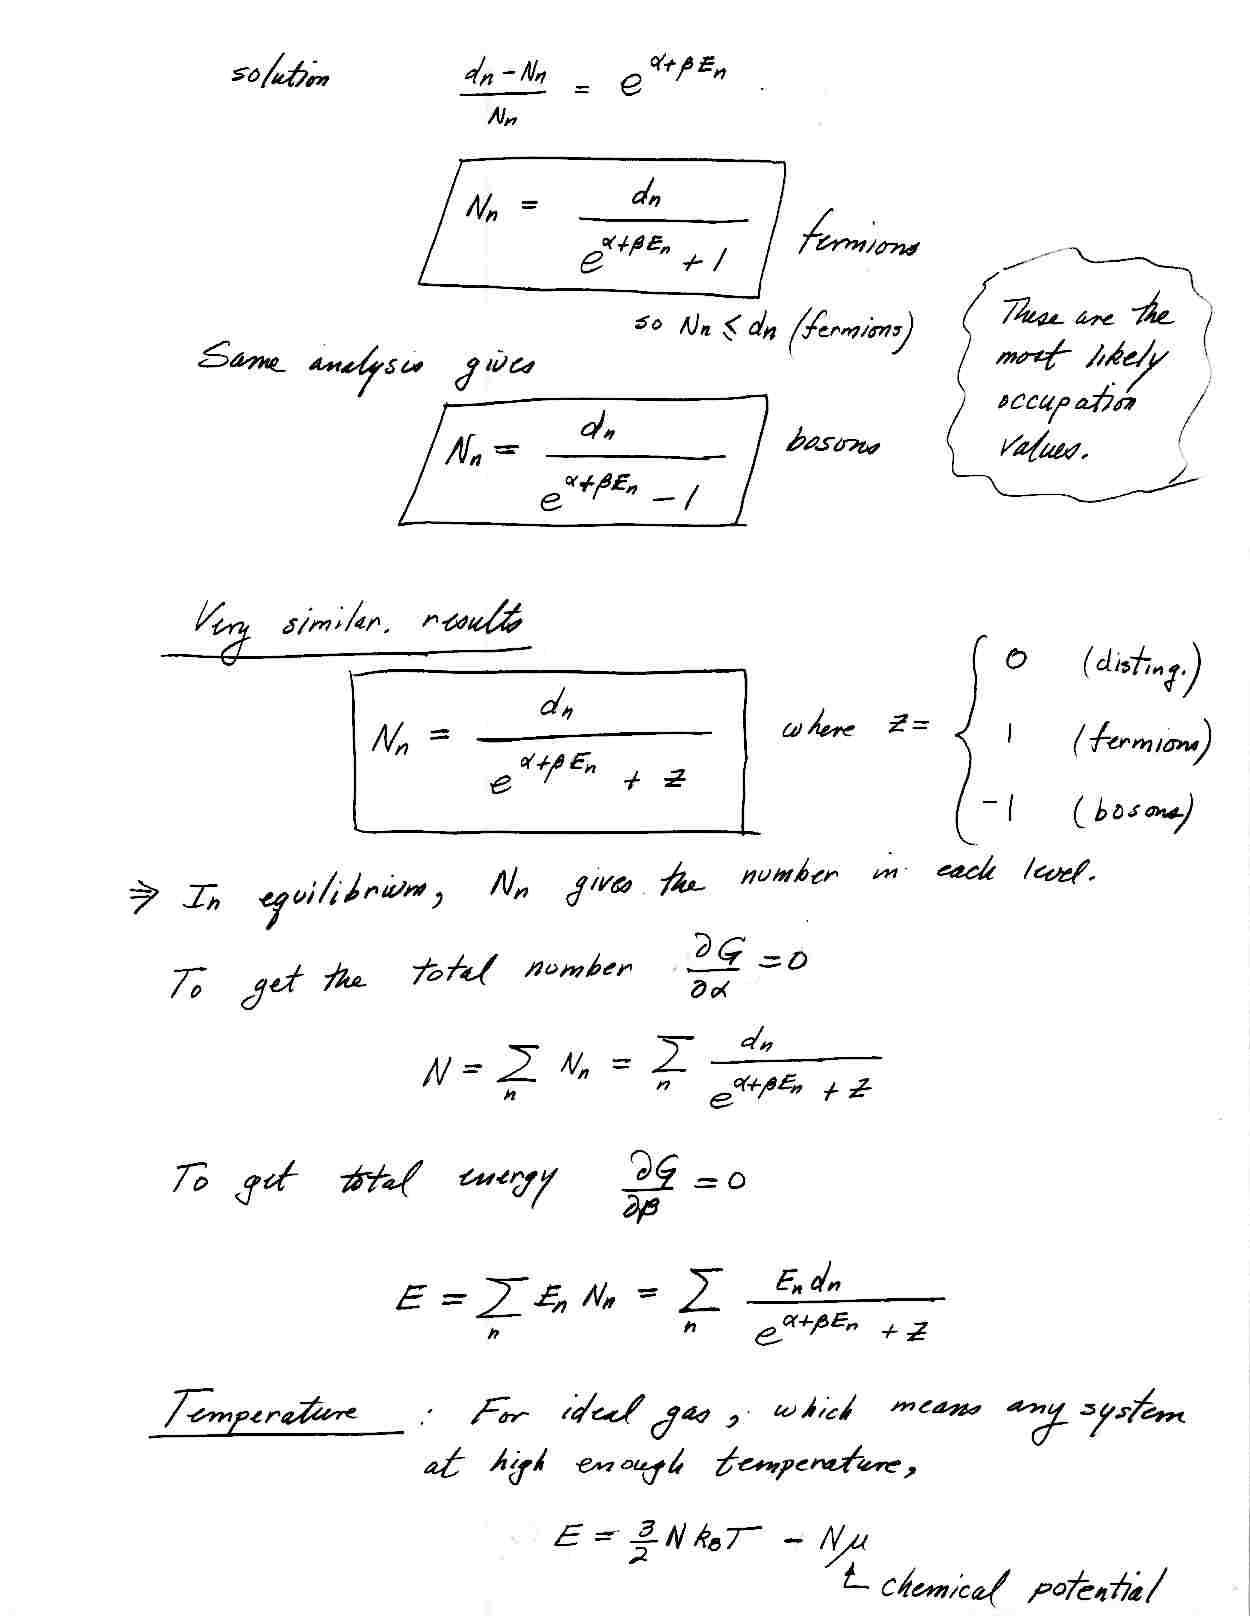 solution (dn - Nn)/Nn = e^(α+βEn)
Nn = dn/(e^(α+βEn) + 1) fermions
so Nn ≤ dn (fermions)
These are the
most likely
occupation
values.
Same analysis gives
Nn = dn/(e^(α+βEn) - 1) bosons
Very similar. results
Nn = dn/(e^(α+βEn) + z) where z = { 0 (disting.)
1 (fermions)
-1 (bosons)
⇒ In equilibrium, Nn gives the number in each level.
To get the total number ∂G/∂α = 0
N = Σn Nn = Σn dn/(e^(α+βEn) + z)
To get total energy ∂G/∂β = 0
E = Σn En Nn = Σn En dn/(e^(α+βEn) + z)
Temperature : For ideal gas, which means any system
at high enough temperature,
E = 3/2 N kBT - Nμ
chemical potential